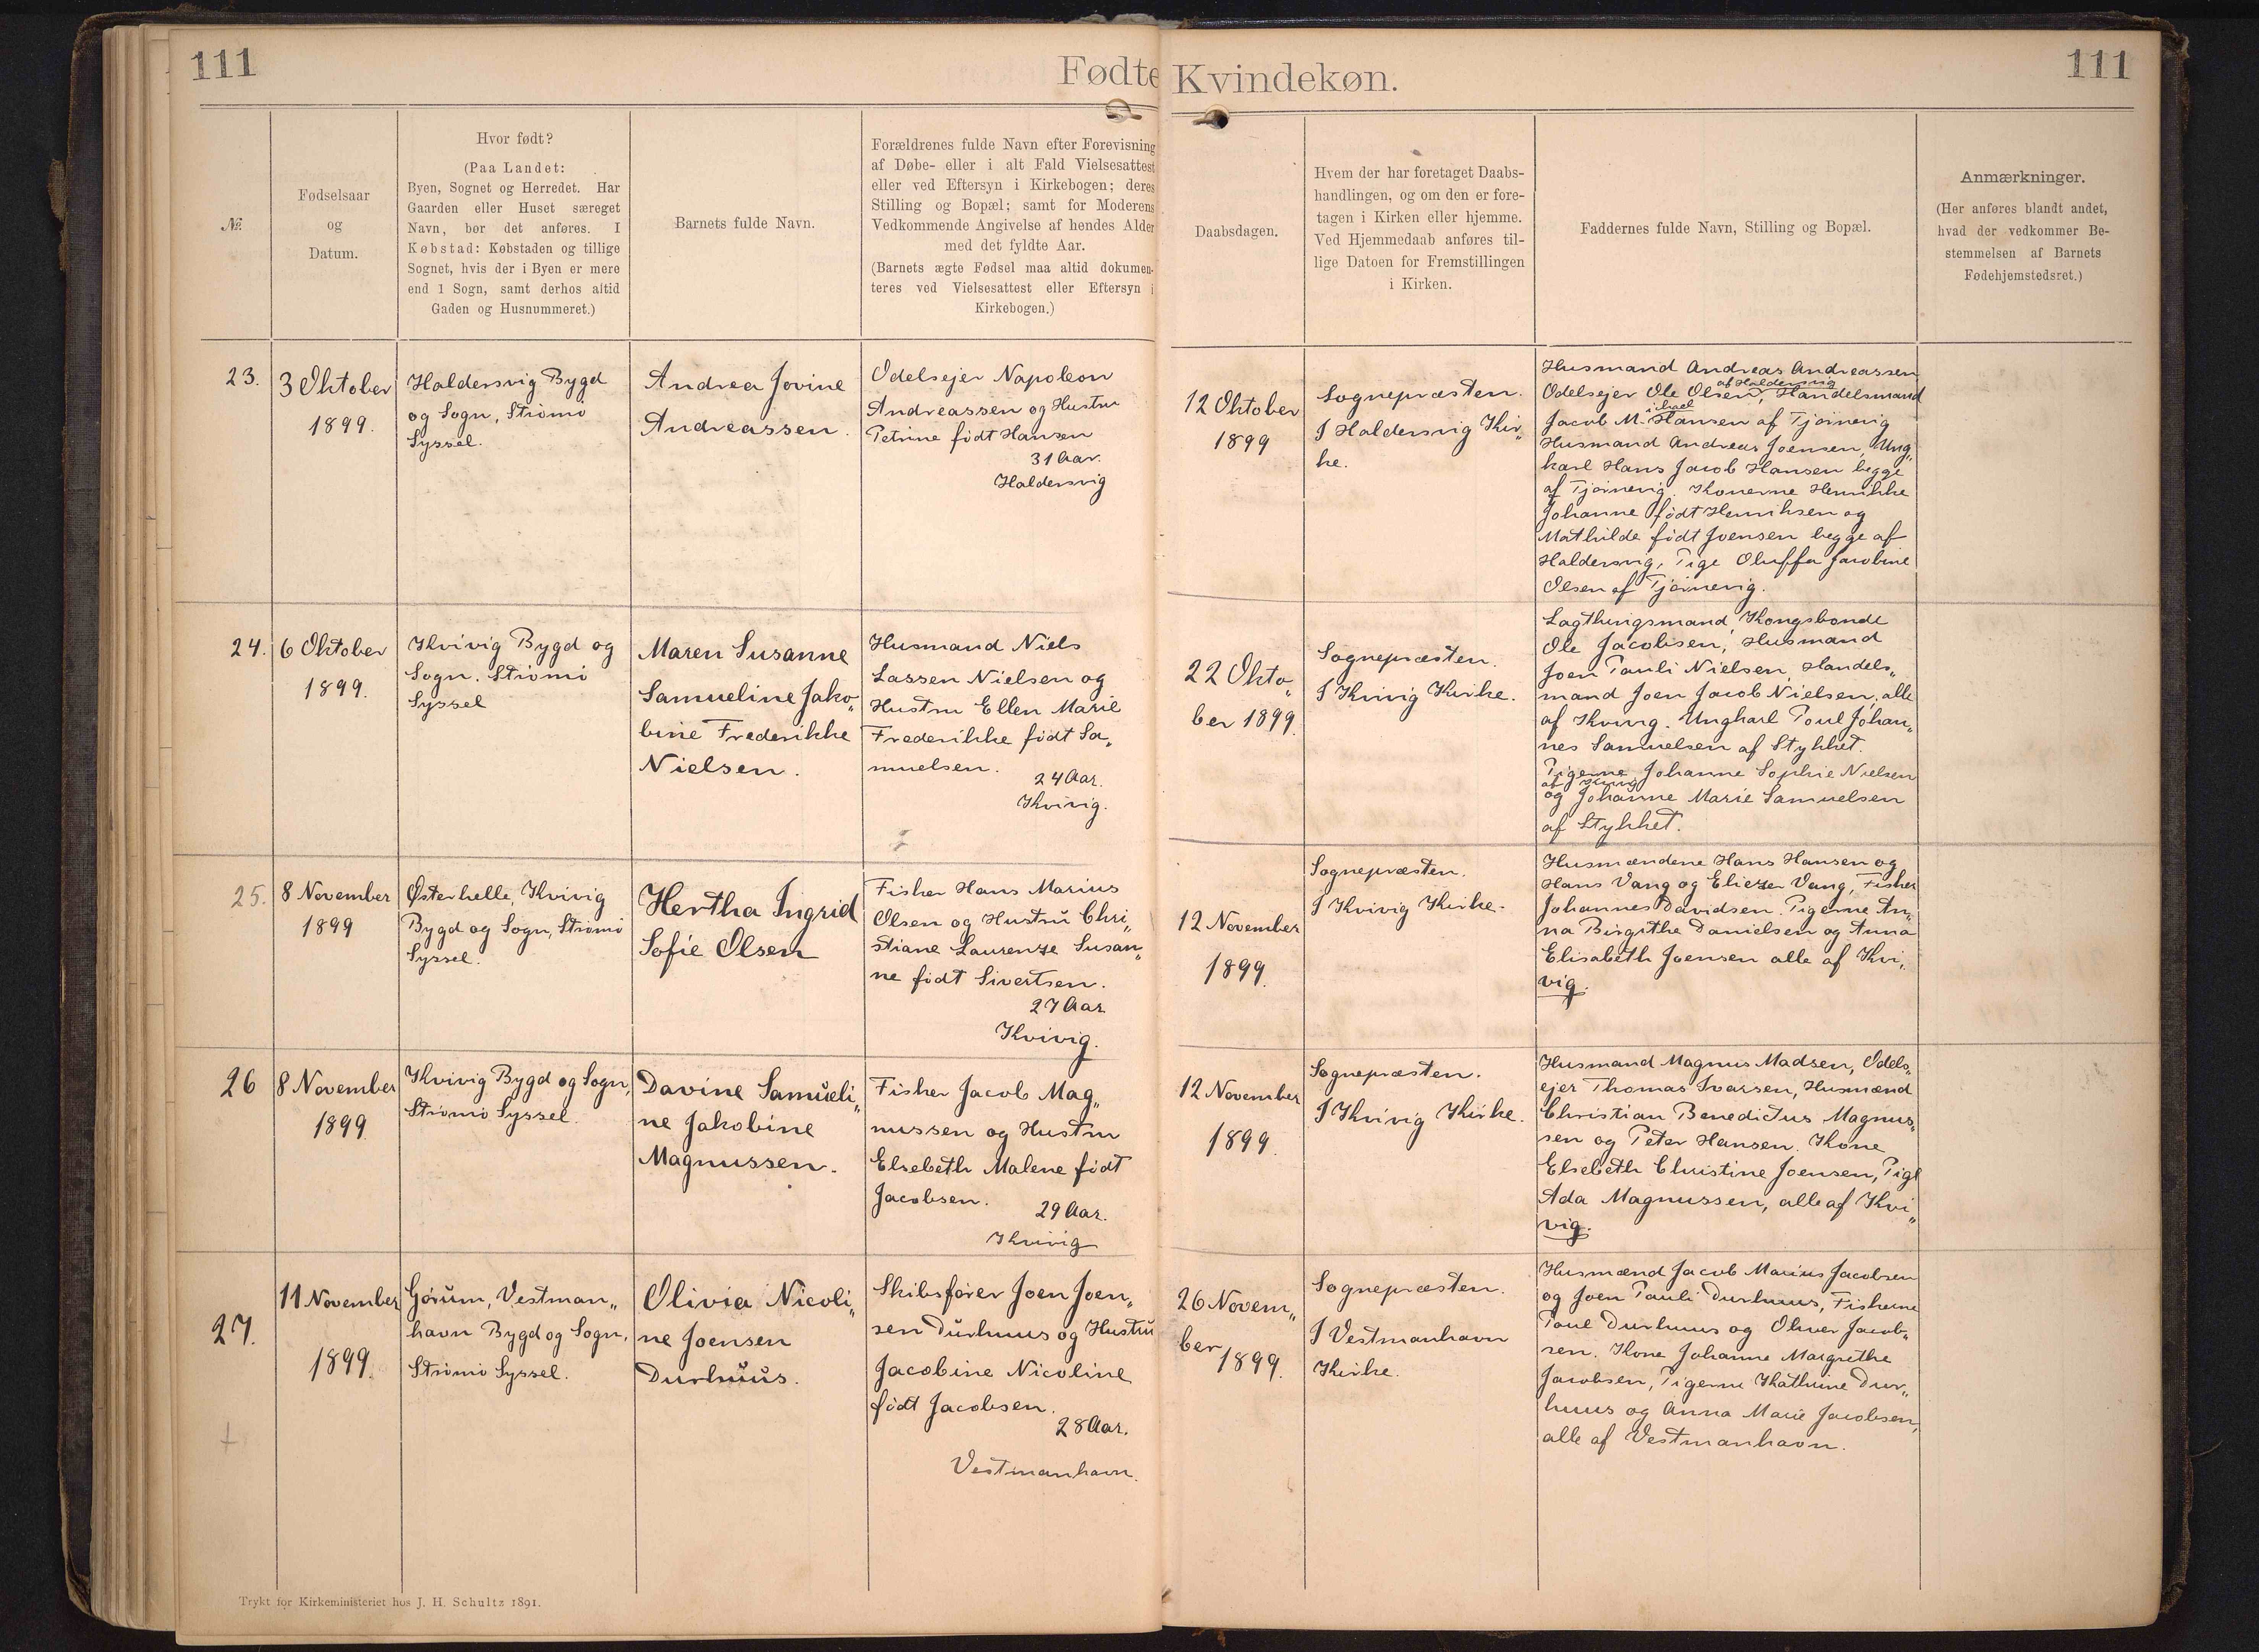 111
Fødte
Kvindekøn.
111
№
Fødselsaar
og
Datum.
Hvor født?
(Paa Landet:
Byen, Sognet og Herredet. Har
Gaarden eller Huset særeget
Navn, bør det anføres. I
Købstad: Købstaden og tillige
Sognet, hvis der i Byen er mere
end 1 Sogn, samt derhos altid
Gaden og Husnummeret.)
Barnets fulde Navn.
Forældrenes fulde Navn efter Forevisning
af Døbe- eller i alt Fald Vielsesattest
eller ved Eftersyn i Kirkebogen; deres
Stilling og Bopæl; samt for Moderens
Vedkommende Angivelse af hendes Alder
med det fyldte Aar.
(Barnets ægte Fødsel maa altid dokumen-
teres ved Vielsesattest eller Eftersyn i
Kirkebogen.)
Daabsdagen.
Hvem der har foretaget Daabs-
handlingen, og om den er fore-
tagen i Kirken eller hjemme.
Ved Hjemmedaab anføres til-
lige Datoen for Fremstillingen
i Kirken.
Faddernes fulde Navn, Stilling og Bopæl.
Anmærkninger.
(Her anføres blandt andet,
hvad der vedkommer Be-
stemmelsen af Barnets
Fødehjemstedsret.)
23.
3 Oktober
1899.
Haldersvig Bygd
og Sogn, Strömö
Syssel.
Andrea Jovine
Andreassen.
Odelsejer Napoleon
Andreassen og Hustru
Petrine födt Hansen
31 Aar.
Haldersvig
12 Oktober
1899
Sognepræsten.
I Haldersvig Kir„
ke.
Husmand Andreas Andreassen
af Haldersvig
Odelsejer Ole Olsen, Handelsmand
ichael
Jacob M. Hansen af Tjörnevig
Husmand Andreas Joensen, Ung„
karl Hans Jacob Hansen begge
af Tjörnevig. Konerne Henrikke
Johanne födt Henriksen og
Mathilde födt Joensen begge af
Haldersvig, Pige Oluffa Jacobine
Olsen af Tjörnevig.
24.
6 Oktober
1899.
Kvivig Bygd og
Sogn. Strömö
Syssel
Maren Susanne
Samueline Jako„
bine Frederikke
Nielsen.
Husmand Niels
Lassen Nielsen og
Hustru Ellen Marie
Frederikke födt Sa„
muelsen.
24 Aar.
Kvivig.
22 Okto„
ber 1899.
Sognepræsten.
I Kvivig Kirke.
Lagthingsmand, Kongsbonde
Ole Jacobsen, Husmand
Joen Pauli Nielsen, Handels„
mand Joen Jacob Nielsen, alle
af Kvivig. Ungkarl Poul Johan„
nes Samuelsen af Stykket.
Pigerne Johanne Sophie Nielsen
af Kvivig
og Johanne Marie Samuelsen
af Stykket.
25.
8 November
1899
Østerhelle, Kvivig
Bygd og Sogn, Strömö
Syssel.
Hertha Ingrid
Sofie Olsen
Fisker Hans Marius
Olsen og Hustru Chri„
stiane Laurenze Susan„
ne födt Sivertsen.
27 Aar
Kvivig.
12 November
1899.
Sognepræsten.
I Kvivig Kirke.
Husmændene Hans Hansen og
Hans Vang og Eliezer Vang, Fisker
Johannes Davidsen. Pigerne An„
na Birgithe Danielsen og Anna
Elisabeth Joensen alle af Kvi„
vig.
26
8 November
1899.
Kvivig Bygd og Sogn,
Strömö Syssel.
Davine Samueli„
ne Jakobine
Magnussen.
Fisker Jacob Mag„
nussen og Hustru
Elsebeth Malene födt
Jacobsen.
29 Aar.
Kvivig
12 November
1899.
Sognepræsten.
I Kvivig Kirke.
Husmand Magnus Madsen, Odels„
ejer Thomas Ivarsen, Husmænd
Christian Benedictus Magnus„
sen og Peter Hansen. Kone
Elsebeth Christine Joensen, Pige
Ada Magnussen, alle af Kvi„
vig.
27.
11 November
1899.
Görum, Vestman„
havn Bygd og Sogn,
Strömö Syssel.
Olivia Nicoli„
ne Joensen
Durhuus.
Skibsförer Joen Joen„
sen Durhuus og Hustru
Jacobine Nicoline
födt Jacobsen.
28 Aar.
Vestmanhavn.
26 Novem„
ber 1899.
Sognepræsten.
I Vestmanhavn
Kirke.
Husmænd Jacob Marius Jacobsen
og Joen Pauli Durhuus, Fiskerne
Poul Durhuus og Oliver Jacob„
sen. Kone Johanne Margrethe
Jacobsen, Pigerne Kathrine Dur„
huus og Anna Marie Jacobsen,
alle af Vestmanhavn.
Trykt for Kirkeministeriet hos J. H. Schultz 1891.